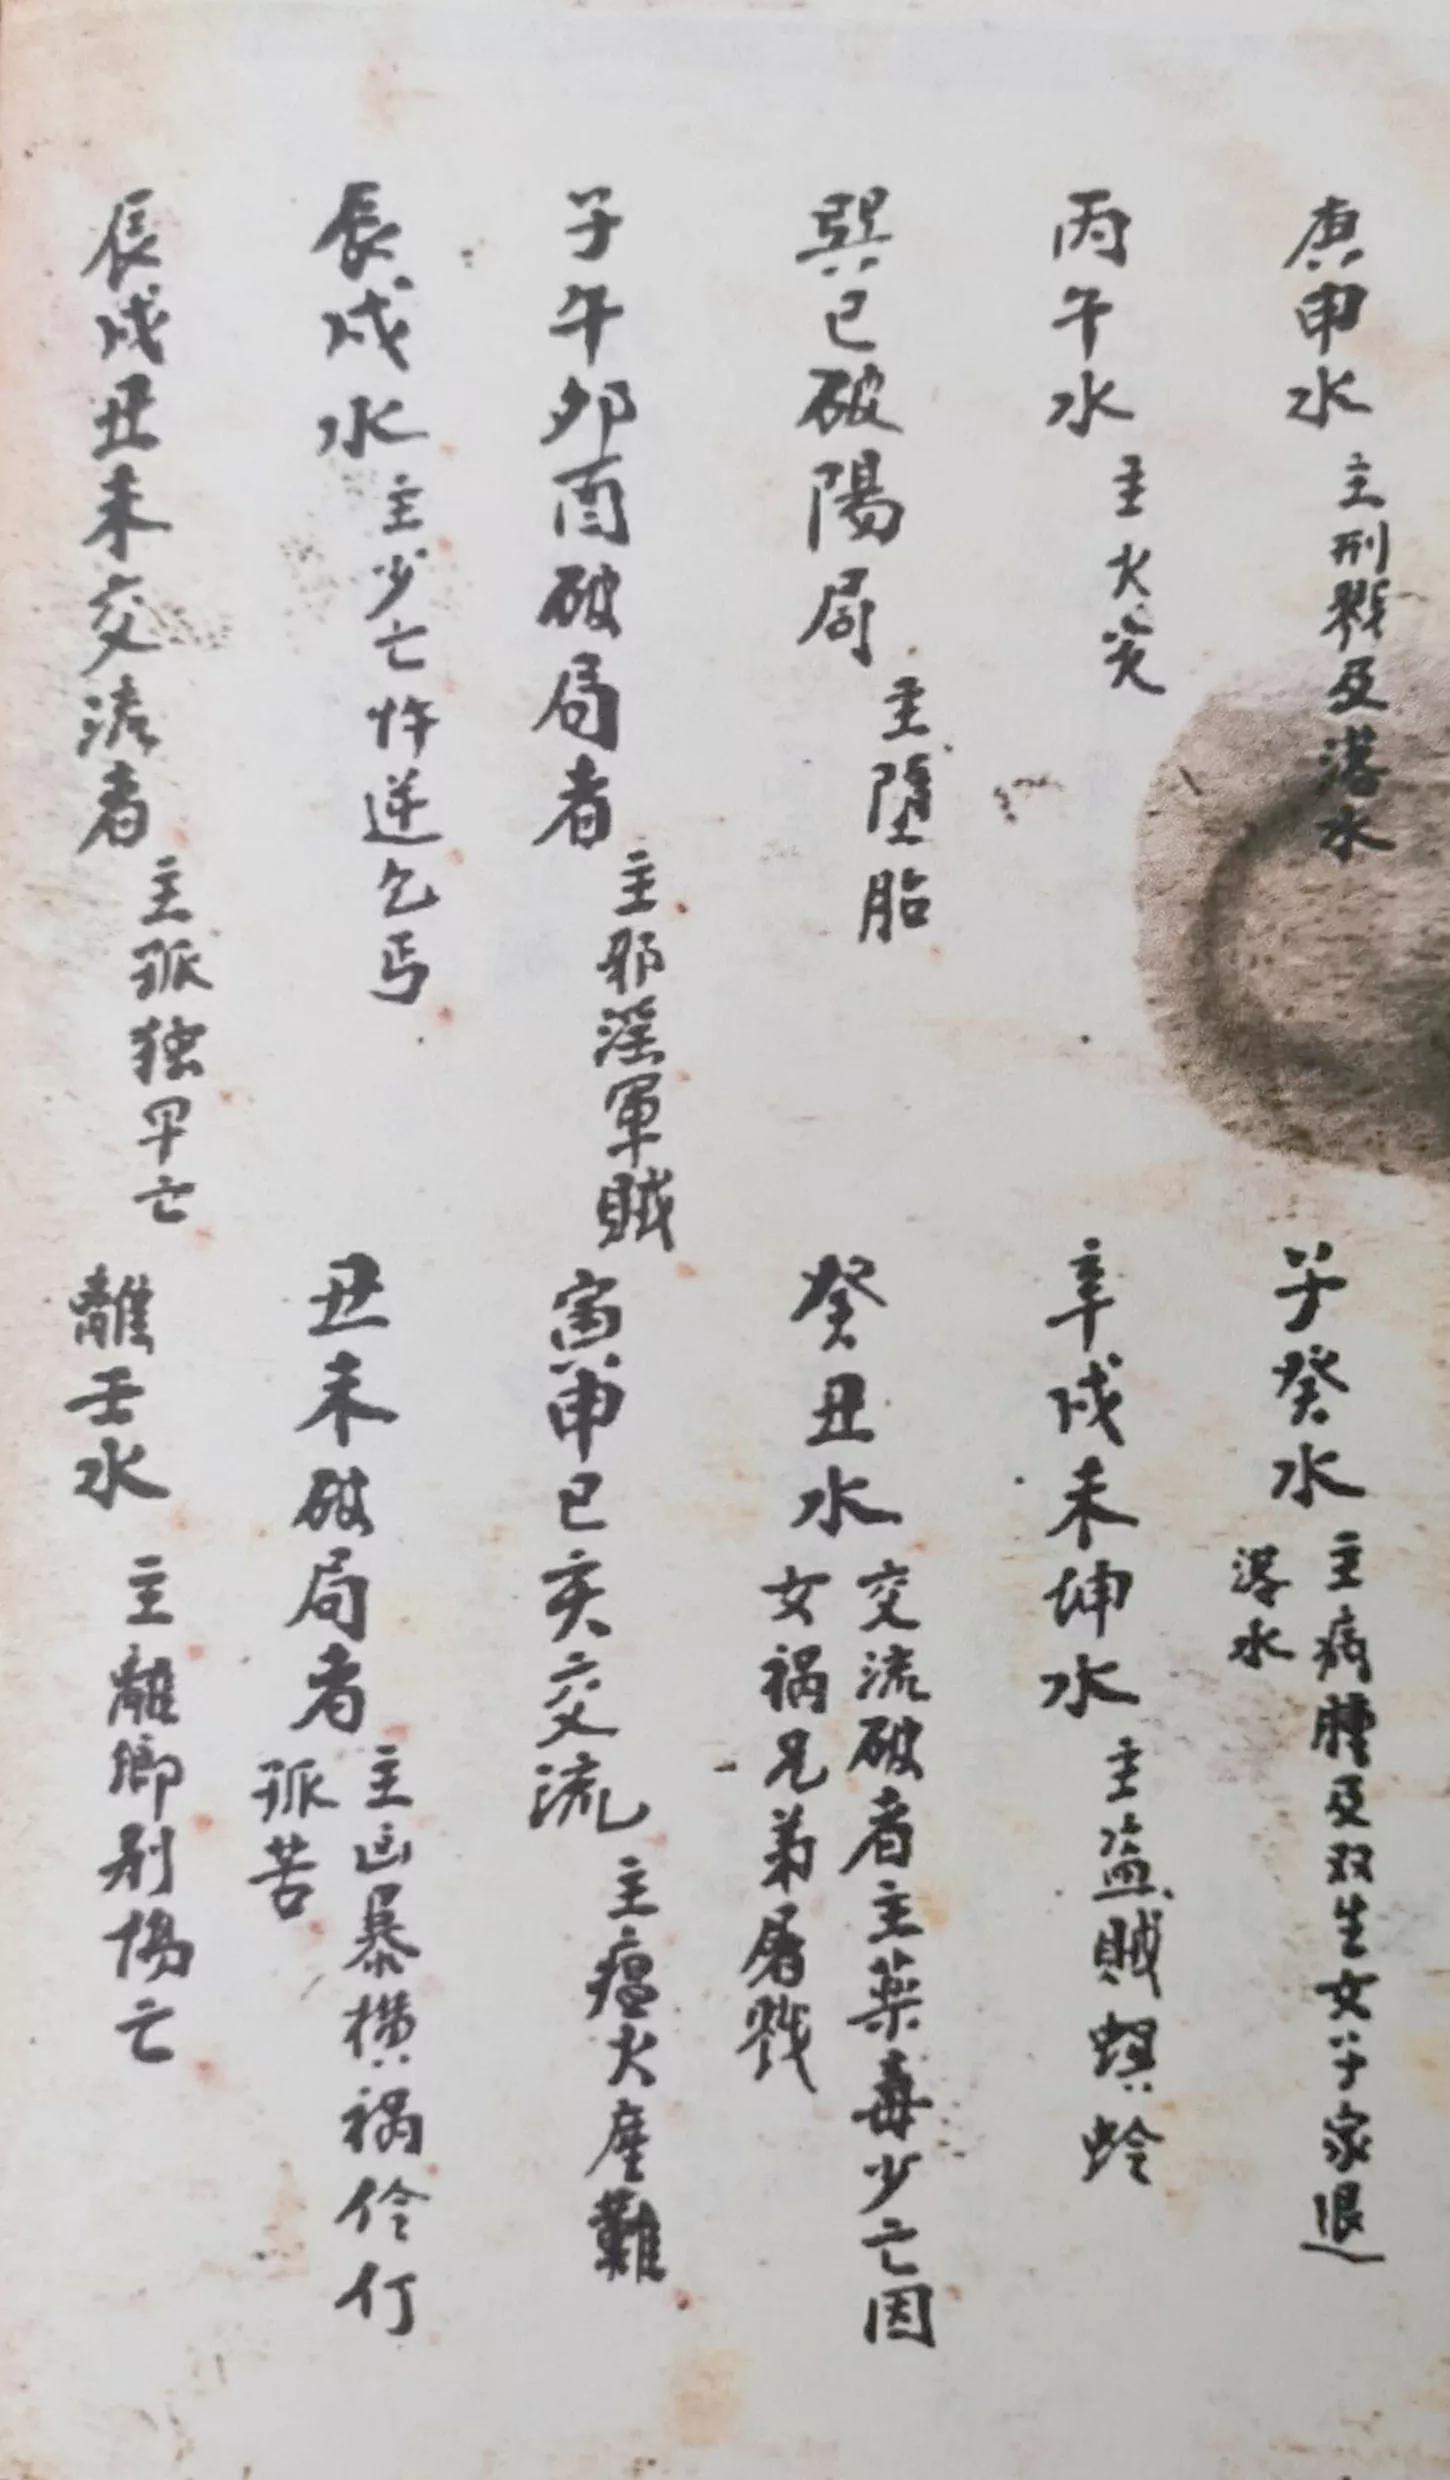 庚申水 主刑戮及落水
子癸水 主病腫及双生女子家退
落水
丙午水 主火災
辛戌未坤水 主盗賊螟蛉
巽巳破陽局 主墮胎
癸丑水 交流破者主藥毒少亡因
女禍兄弟屠戮
子午卯酉破局者 主邪淫軍賊
寅申巳亥交流 主瘟火產難
辰戌水 主少亡忤逆乞丐
丑未破局者 主凶暴横禍伶仃
孤苦
辰戌丑未交流者 主孤独早亡
離壬水 主離鄉刑傷亡